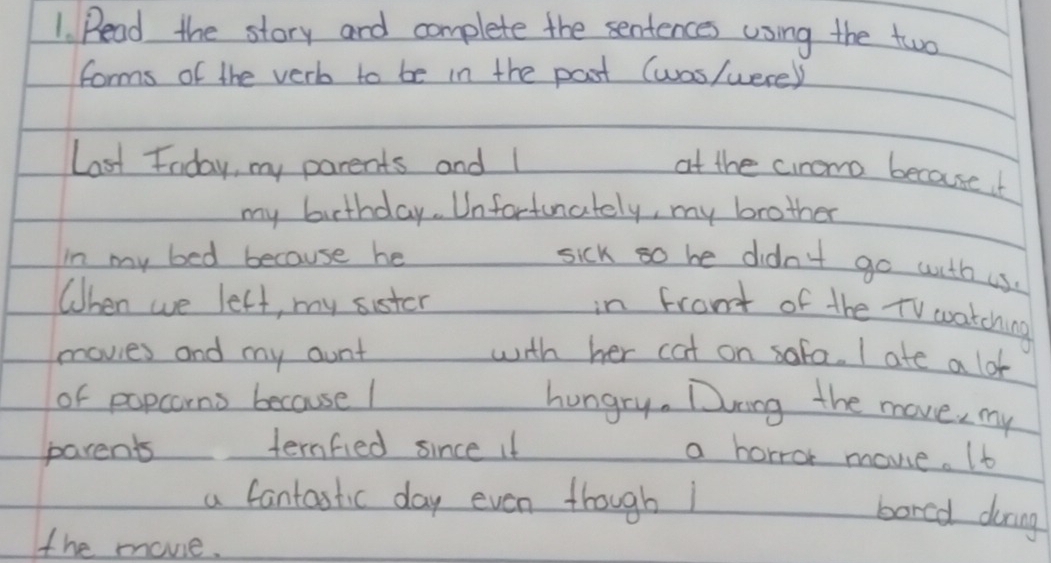 1. Read the story and complete the sentences using the two
forms of the verb to be in the past (was/were)
Last Friday, my parents and I at the cinema because it
my birthday. Unfortunately, my brother
in my bed because he sick so he didn't go with us.
When we left, my sister in front of the TV watching
movies and my aunt with her cat on sofa. I ate a lot
of popcorns because I hungry. During the movie, my
parents terrified since it a horror movie. It
a fantastic day even though I bored during
the movie.